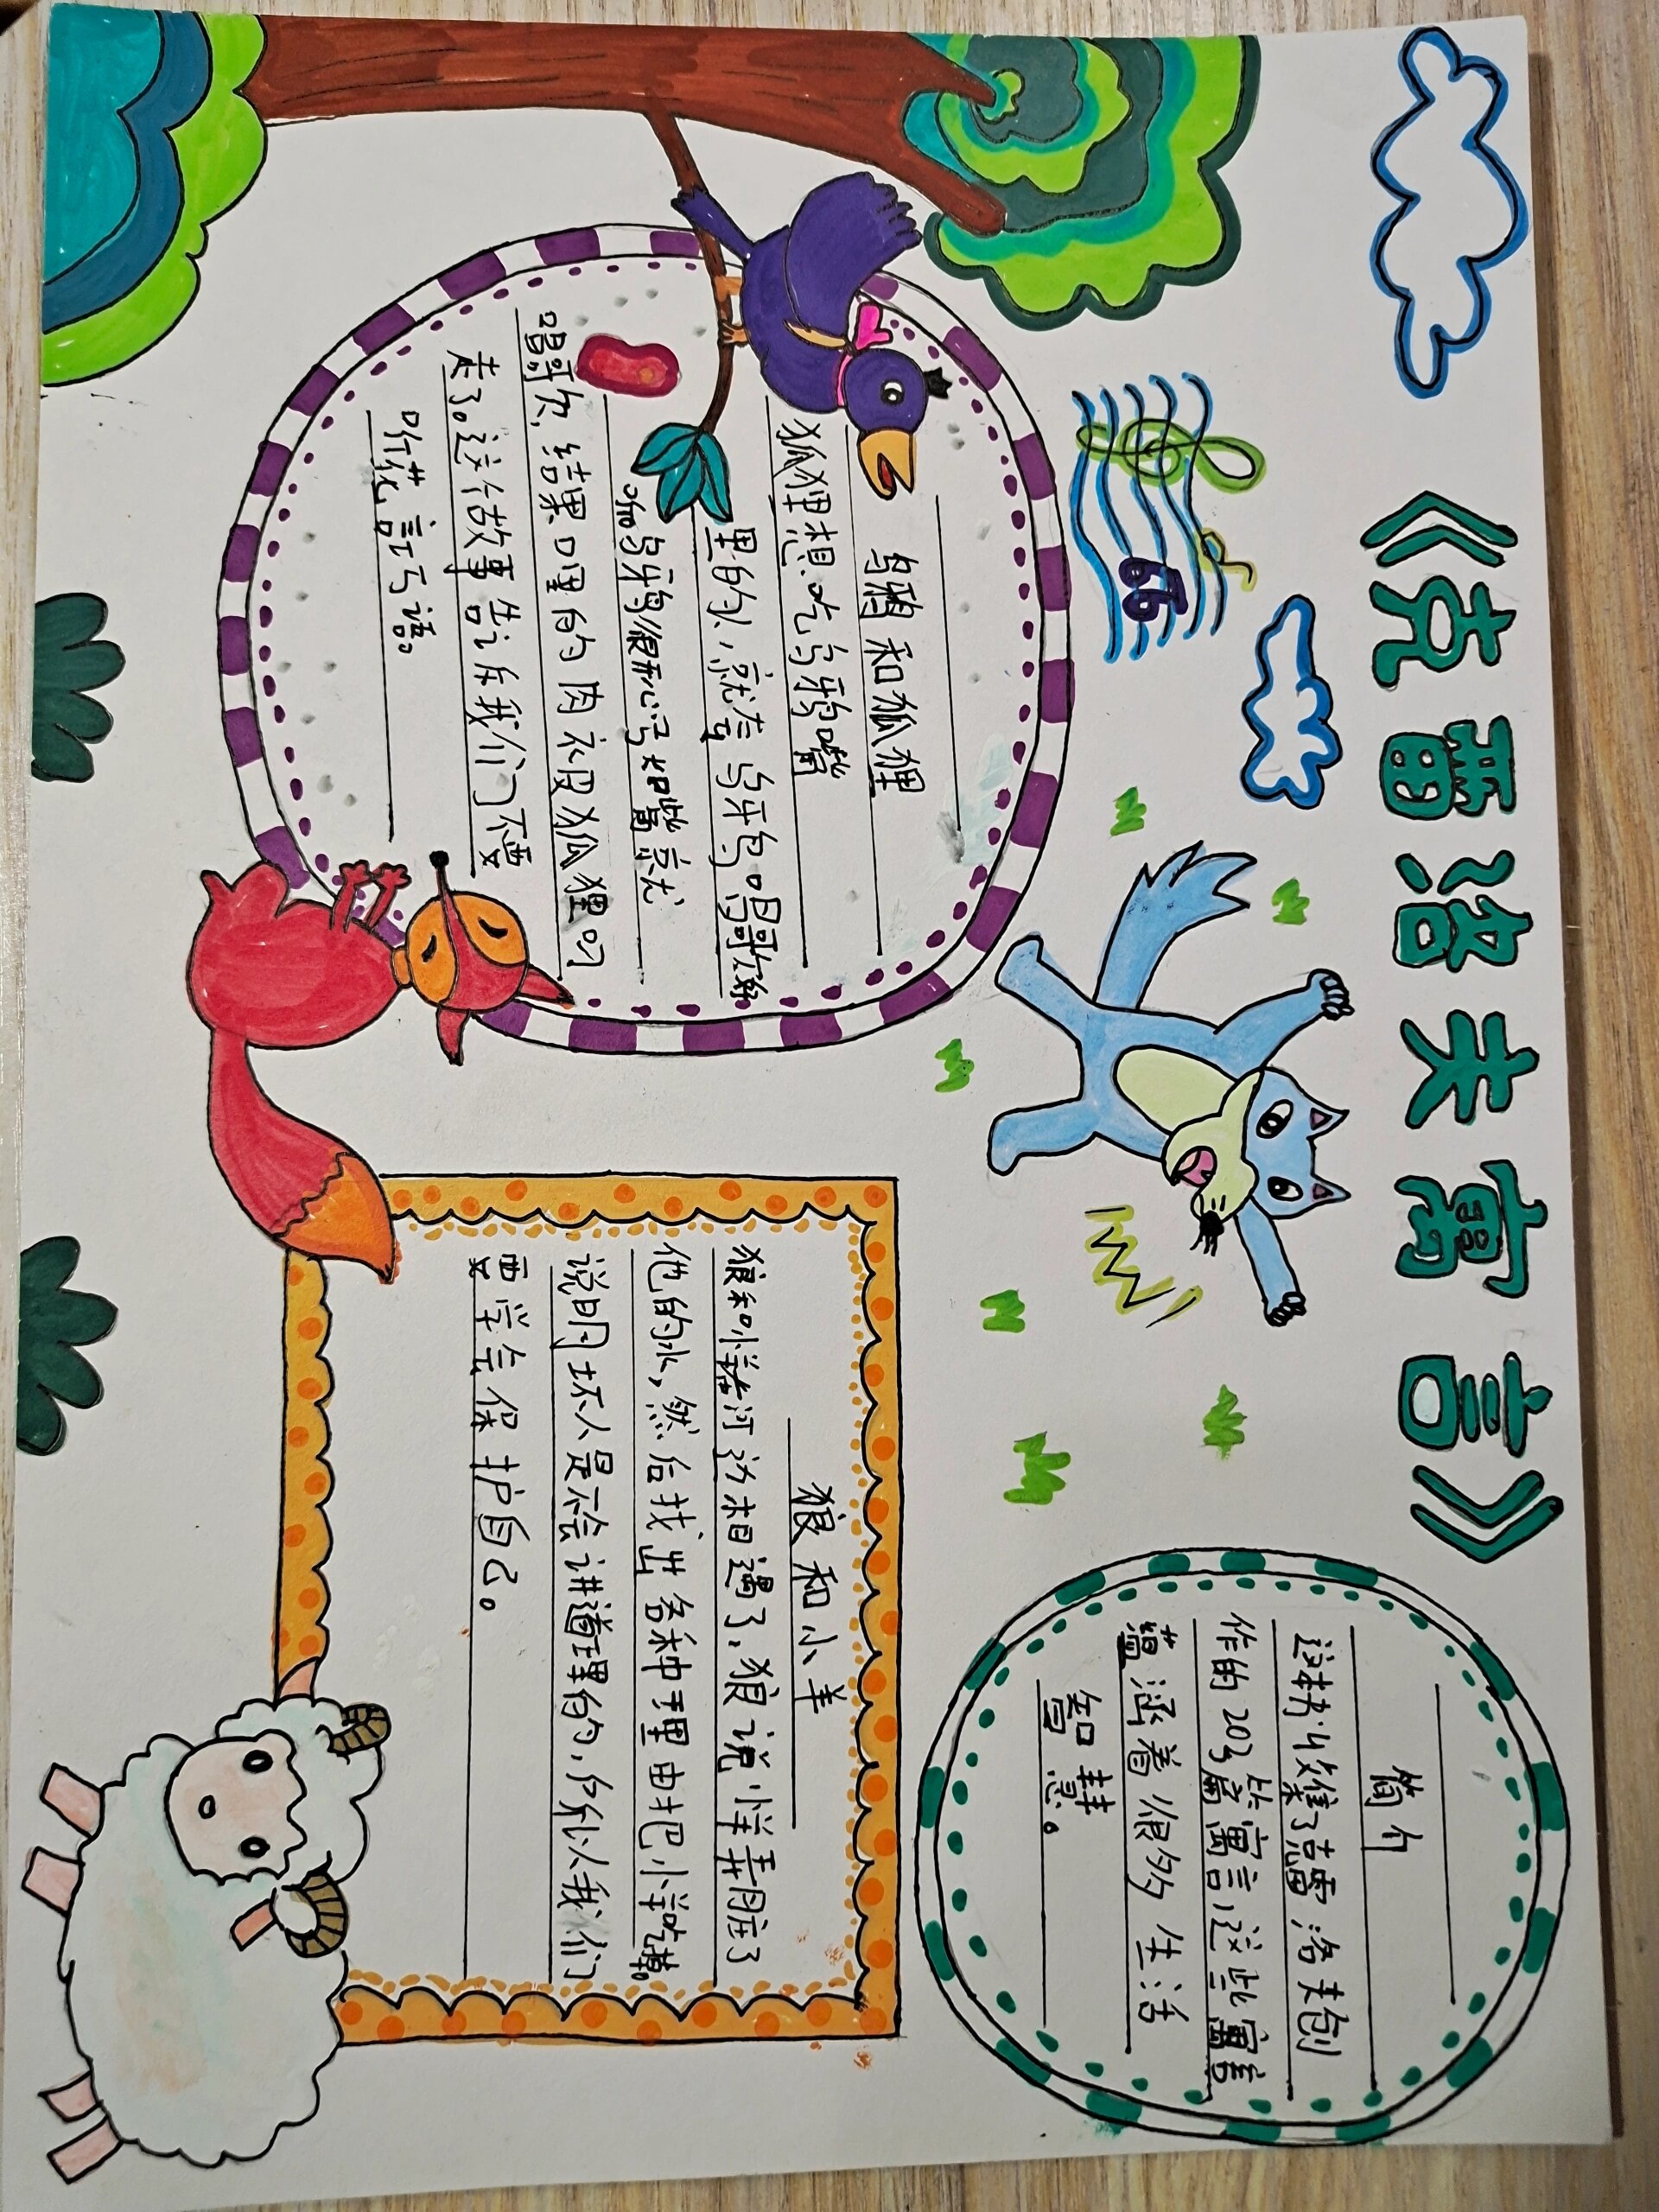 《克雷洛夫寓言》
乌鸦和狐狸
狐狸想吃乌鸦嘴
里的肉,就夸乌鸦唱歌
乌鸦很开心 嘴就
唱歌,结果口里的肉被狐狸叼
走了。这个故事告诉我们不要
听花言巧语。
简介
这本书收集了克雷洛夫创
作的203篇寓言,这些寓言
蕴涵着很多生活
智慧。
狼和小羊
狼和小羊在河边相遇了,狼说小羊弄脏了
他的水,然后找出各种理由把小羊吃掉。
说明坏人是不会讲道理的,所以我们
要学会保护自己。